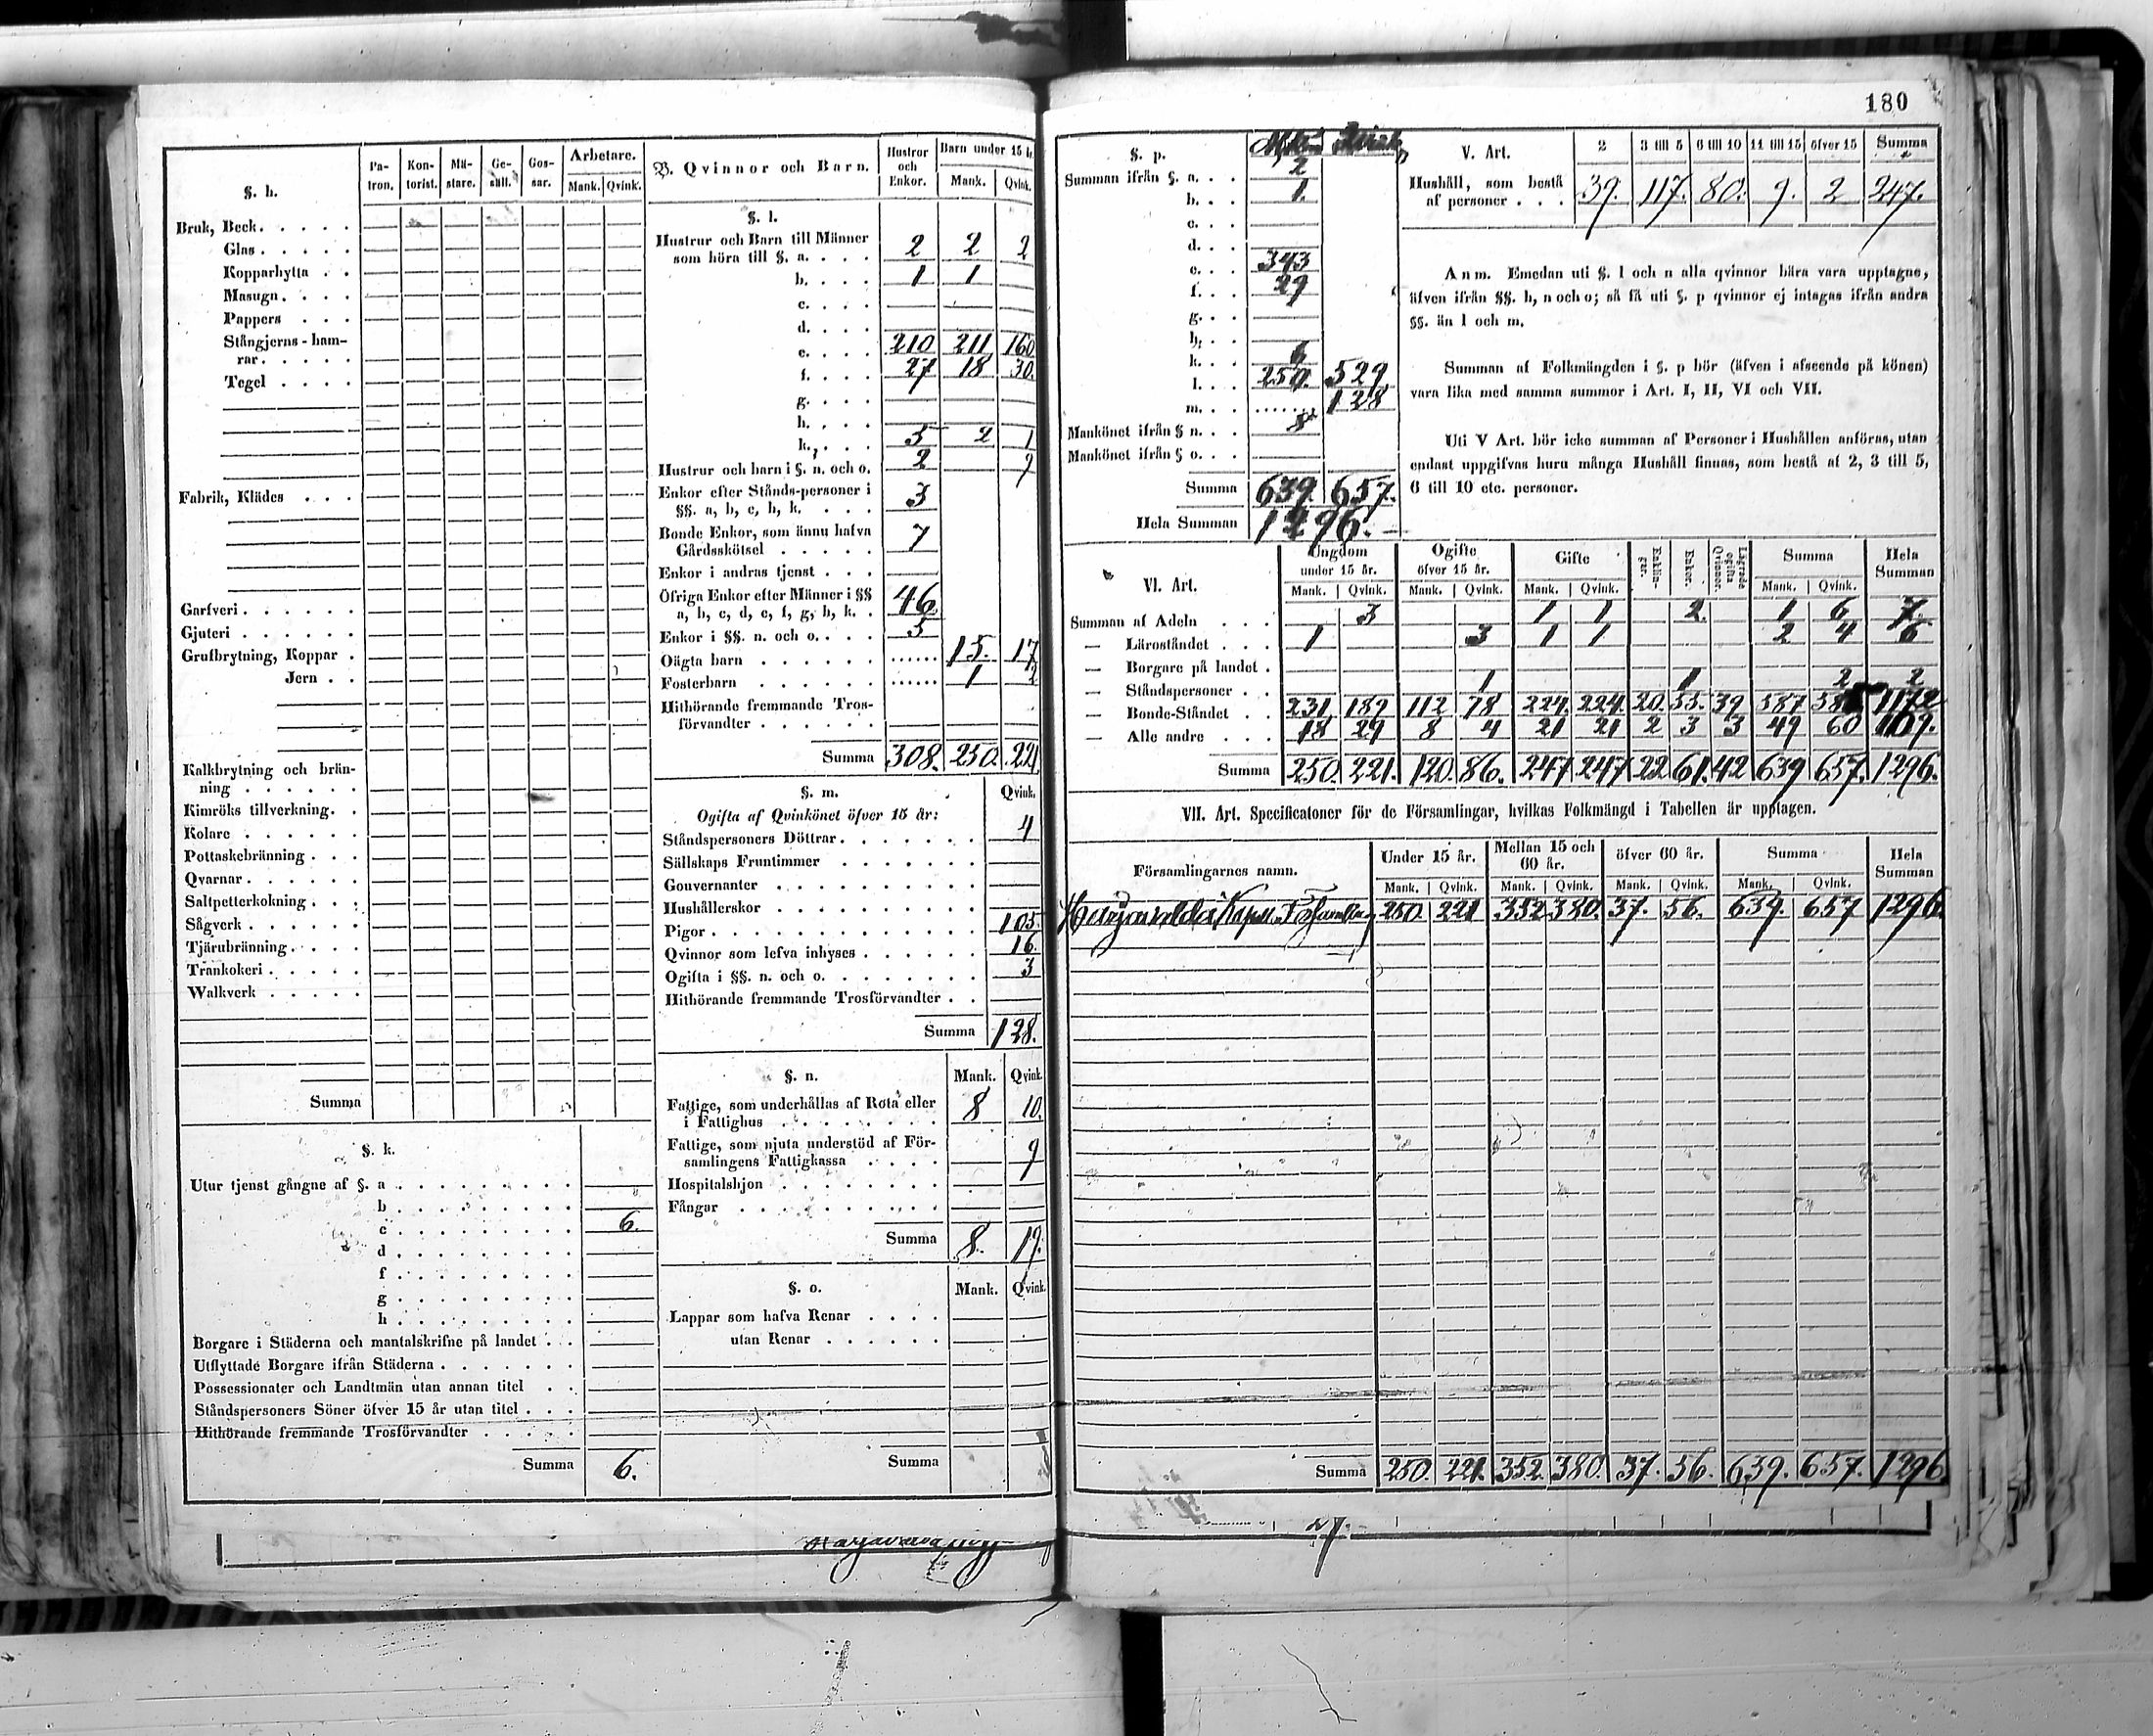 180
§. h.
Pa-tron. Kon-torist. Mä-stare. Ge-säll. Gos-sar. Arbetare.
Mank. Qvink.
Bruk, Beck
Glas
Kopparhytta
Masugn
Pappers
Stångjerns-ham-
rar
Tegel
Fabrik, Klädes
Garfveri
Gjuteri
Grufbrytning, Koppar
Jern
Kalkbrytning och brän-
ning
Kimröks tillverkning
Kolare
Pottaskebränning
Qvarnar
Saltpetterkokning
Sågverk
Tjärubränning
Trankokeri
Walkverk
Summa
§. k.
Utur tjenst gångne af §. a
b
c 6.
d
f
g
h
Borgare i Städerna och mantalskrifne på landet
Utflyttade Borgare ifrån Städerna
Possessionater och Landtmän utan annan titel
Ståndspersoners Söner öfver 15 år utan titel
Hithörande fremmande Trosförvandter
Summa 6.
B. Qvinnor och Barn. Hustrur och Enkor. Barn under 15 år
Mank. Qvink.
§. l.
Hustrur och Barn till Männer
som höra till §. a. 2 2 2
b. 1 1
c.
d.
e. 210 211 160
f. 27 18 30.
g.
h.
k. 5 2 1
Hustrur och barn i §. n. och o. 2 9
Enkor efter Stånds-personer i
§§. a, b, c, h, k. 3
Bonde Enkor, som ännu hafva
Gårdsskötsel 7
Enkor i andras tjenst
Öfriga Enkor efter Männer i §§
a, b, c, d, e, f, g, h, k. 46
Enkor i §§. n. och o. 5
Oägta barn 15. 17
Fosterbarn 1 2
Hithörande fremmande Tros-
förvandter
Summa 308. 250. 221
§. m. Qvink.
Ogifta af Qvinkönet öfver 15 år:
Ståndspersoners Döttrar 4
Sällskaps Fruntimmer
Gouvernanter
Hushållerskor
Pigor 105.
Qvinnor som lefva inhyses 16.
Ogifta i §§. n. och o. 3
Hithörande fremmande Trosförvandter
Summa 128.
§. n. Mank. Qvink.
Fattige, som underhållas af Rota eller
i Fattighus 8 10.
Fattige, som njuta understöd af För-
samlingens Fattigkassa 9
Hospitalshjon
Fångar
Summa 8. 19.
§. o. Mank. Qvink.
Lappar som hafva Renar
utan Renar
Summa
§. p.
Summan ifrån §. a. 2
b. 1.
c.
d.
e. 343
f. 29
g.
h.
k. 6
l. 250. 529
m. 128
Mankönet ifrån § n. 8
Mankönet ifrån § o.
Summa 639. 657.
Hela Summan 1296.
V. Art. 2 3 till 5 6 till 10 11 till 15 öfver 15 Summa
Hushåll, som bestå
af personer 39. 117. 80. 9. 2 247.
Anm. Emedan uti §. l och n alla qvinnor böra vara upptagne,
äfven ifrån §§. h, n och o; så få uti §. p qvinnor ej intagas ifrån andra
§§. än l och m.
Summan af Folkmängden i §. p bör (äfven i afseende på könen)
vara lika med samma summor i Art. I, II, VI och VII.
Uti V Art. bör icke summan af Personer i Hushållen anföras, utan
endast uppgifvas huru många Hushåll finnas, som bestå af 2, 3 till 5,
6 till 10 etc. personer.
VI. Art. Ungdom under 15 år. Ogifte öfver 15 år. Gifte Enklin-gar. Enkor. Lägrade ogifta Qvinnor. Summa Hela Summan
Mank. Qvink. Mank. Qvink. Mank. Qvink. Mank. Qvink.
Summan af Adeln 3 1 1 2. 1 6 7.
— Läroståndet 1 3 1 1 2 4 6
— Borgare på landet
— Ståndspersoner 1 1 2 2
— Bonde-Ståndet 231 189 112 78 224. 224. 20. 55. 39 587 585 1172
— Alle andre 18 29 8 4 21 21 2 3 3 49 60 109.
Summa 250. 221. 120. 86. 247 247 22 61. 42 639 657. 1296.
VII. Art. Specificatoner för de Församlingar, hvilkas Folkmängd i Tabellen är upptagen.
Församlingarnes namn. Under 15 år. Mellan 15 och 60 år. öfver 60 år. Summa Hela Summan
Mank. Qvink. Mank. Qvink. Mank. Qvink. Mank. Qvink.
250. 221 352 380. 37. 56. 639. 657 1296.
Summa 250. 221. 352. 380. 37. 56. 639. 657. 1296